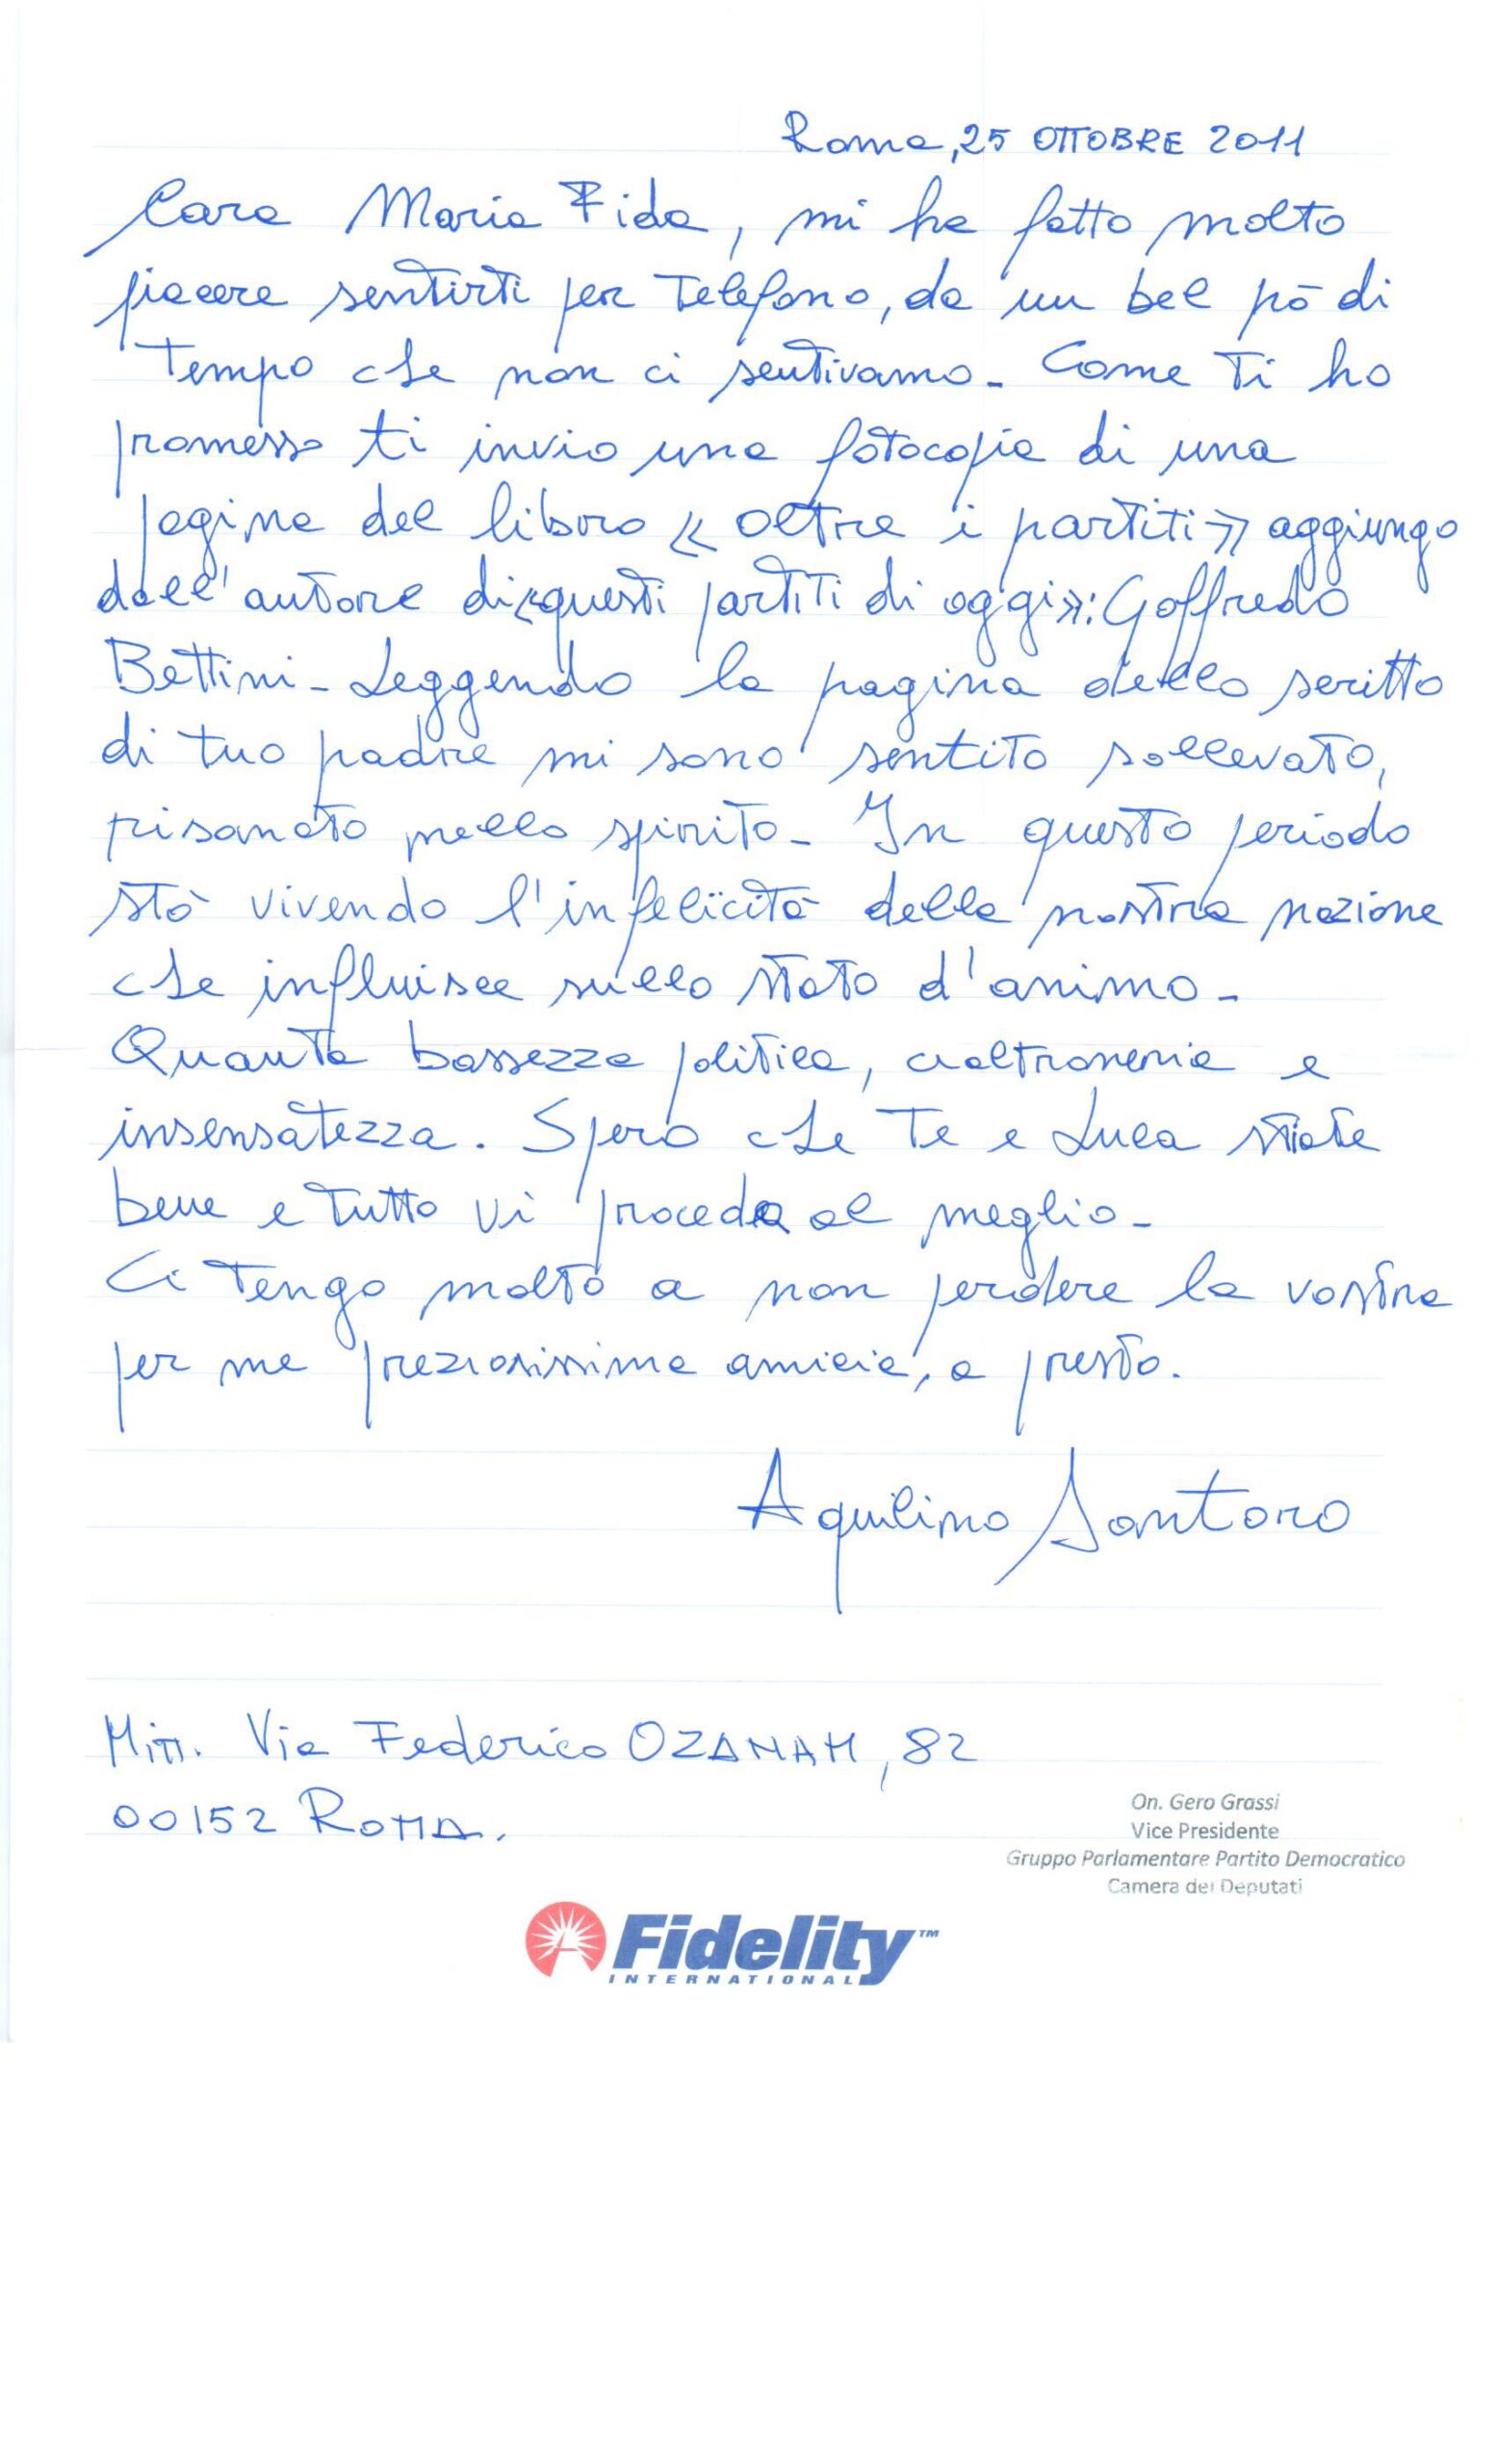 Roma, 25 OTTOBRE 2011
Cara Maria Fida, mi ha fatto molto
piacere sentirti per Telefono, da un bel pò di
Tempo che non ci sentivamo - Come Ti ho
promesso ti invio una fotocopia di una
pagina del libro « oltre i partiti» aggiungo
dall'autore di «questi partiti di oggi»: Goffredo
Bettini - Leggendo la pagina dello scritto
di tuo padre mi sono sentito sollevato,
risanato nello spirito - In questo periodo
stò vivendo l'infelicità della nostra nazione
che influisce sullo stato d'animo -
Quanta bassezza politica, cialtroneria e
insensatezza. Spero che Te e Luca stiate
bene e tutto vi proceda al meglio -
Ci tengo molto a non perdere la vostra
per me preziosissima amicia, a presto.
Aquilino Santoro
Mitt. Via Federico OZANAM, 82
00152 ROMA.
On. Gero Grassi
Vice Presidente
Gruppo Parlamentare Partito Democratico
Camera dei Deputati
Fidelity™
INTERNATIONAL